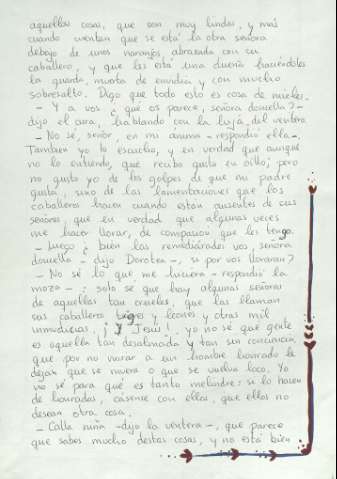 aquellas cosas, que son muy lindas, y más
cuando cuentan que se está la otra señora
debajo de unos naranjos, abrazada con su
caballero, y que les está una dueña haciéndoles
la guarda, muerta de envidia y con mucho
sobresalto. Digo que todo esto es cosa de mieles.
- Y a vos ¿qué os parece, señora doncella? -
dijo el cura, hablando con la hija del ventero.
- No sé, señor, en mi ánima - respondió ella -.
También yo lo escucho, y en verdad que aunque
no lo entiendo, que recibo gusto en oillo; pero
no gusto yo de los golpes de que mi padre
gusta, sino de las lamentaciones que los
caballeros hacen cuando están ausentes de sus
señoras, que en verdad que algunas veces
me hacen llorar, de compasión que les tengo.
- Luego ¿bien las remediárades vos, señora
doncella - dijo Dorotea -, si por vos lloraran?
- No sé lo que me hiciera - respondió la
moza -; solo sé que hay algunas señoras
de aquellas tan crueles, que las llaman
sus caballeros tigres y leones y otras mil
inmundicias. ¡Y Jesús! yo no sé qué gente
es aquella tan desalmada y tan sin conciencia,
que por no mirar a un hombre honrado le
dejan que se muera o que se vuelva loco. Yo
no sé para qué es tanto melindre: si lo hacen
de honradas, cásense con ellos, que ellos no
desean otra cosa.
- Calla niña - dijo la ventera -, que parece
que sabes mucho destas cosas, y no está bien